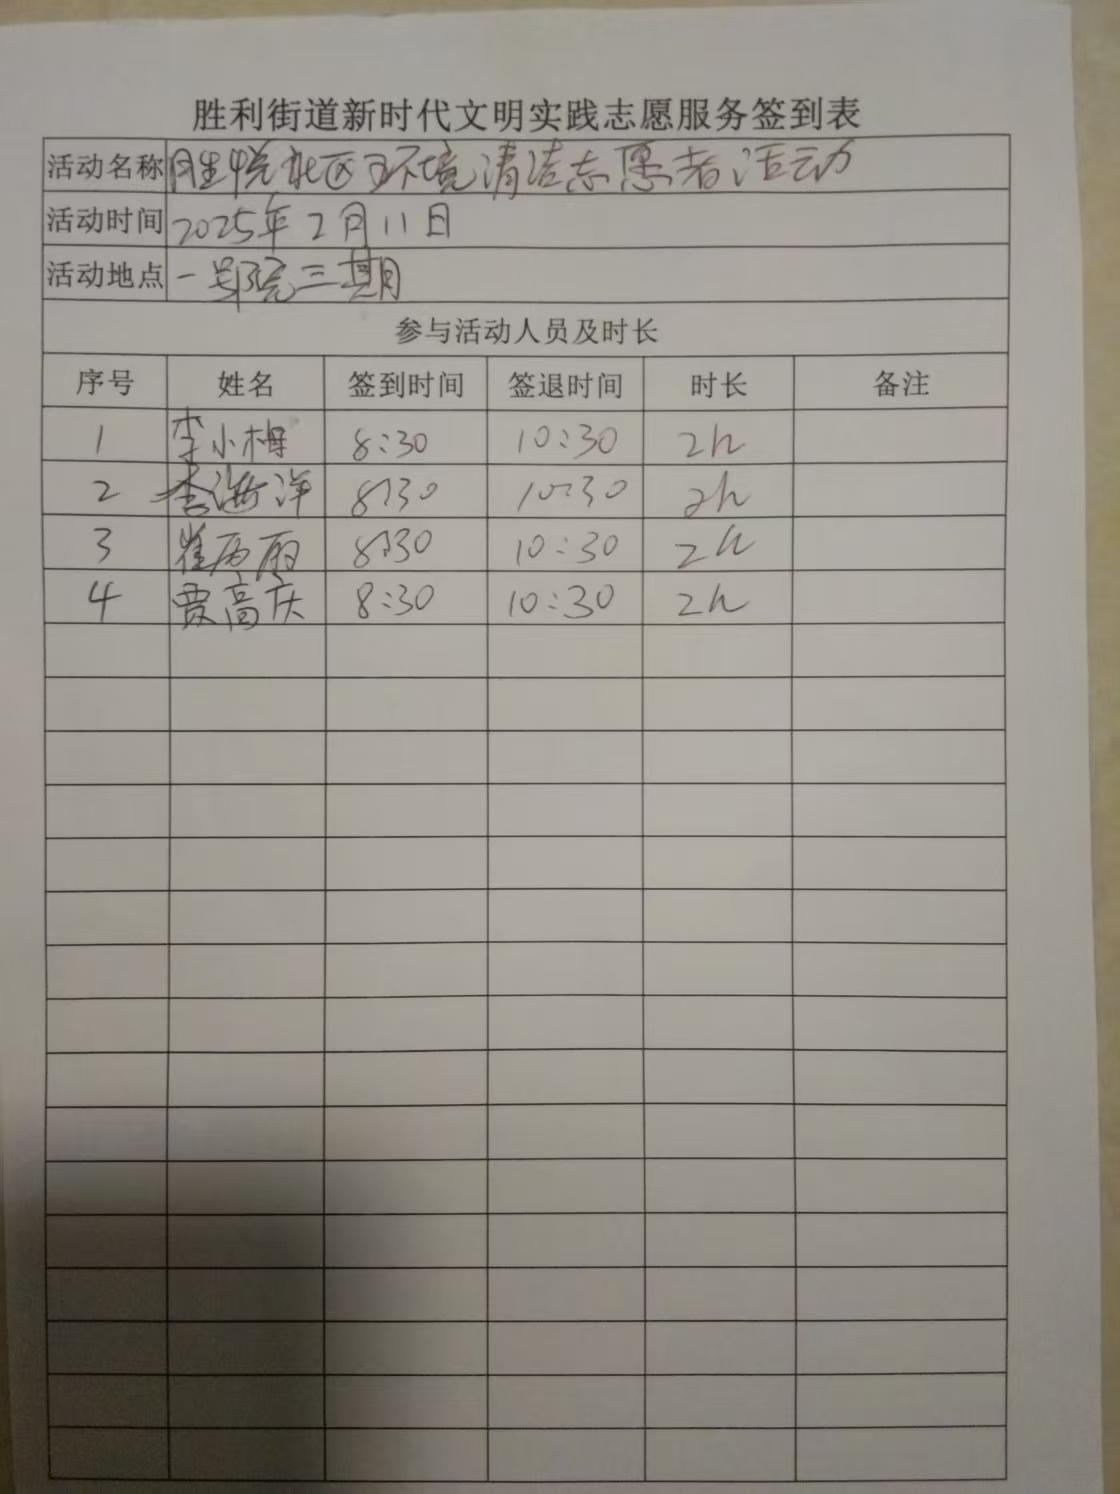 胜利街道新时代文明实践志愿服务签到表
活动名称 胜悦社区环境清洁志愿者活动
活动时间 2025年2月11日
活动地点 一郡院三期
参与活动人员及时长
序号 姓名 签到时间 签退时间 时长 备注
1 李小梅 8:30 10:30 2h
2 李海洋 8:30 10:30 2h
3 崔丽 8:30 10:30 2h
4 贾高庆 8:30 10:30 2h